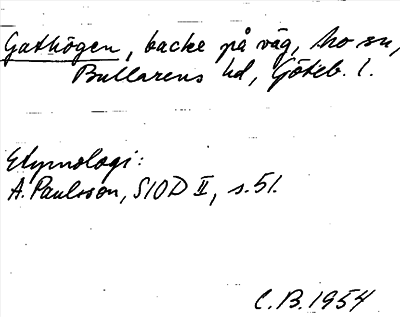 Gathögen, backe på väg, Mo sn,
Bullarens hd, Göteb. l.
Etymologi:
A. Paulsson, SIOD II, s. 51.
C.B. 1954